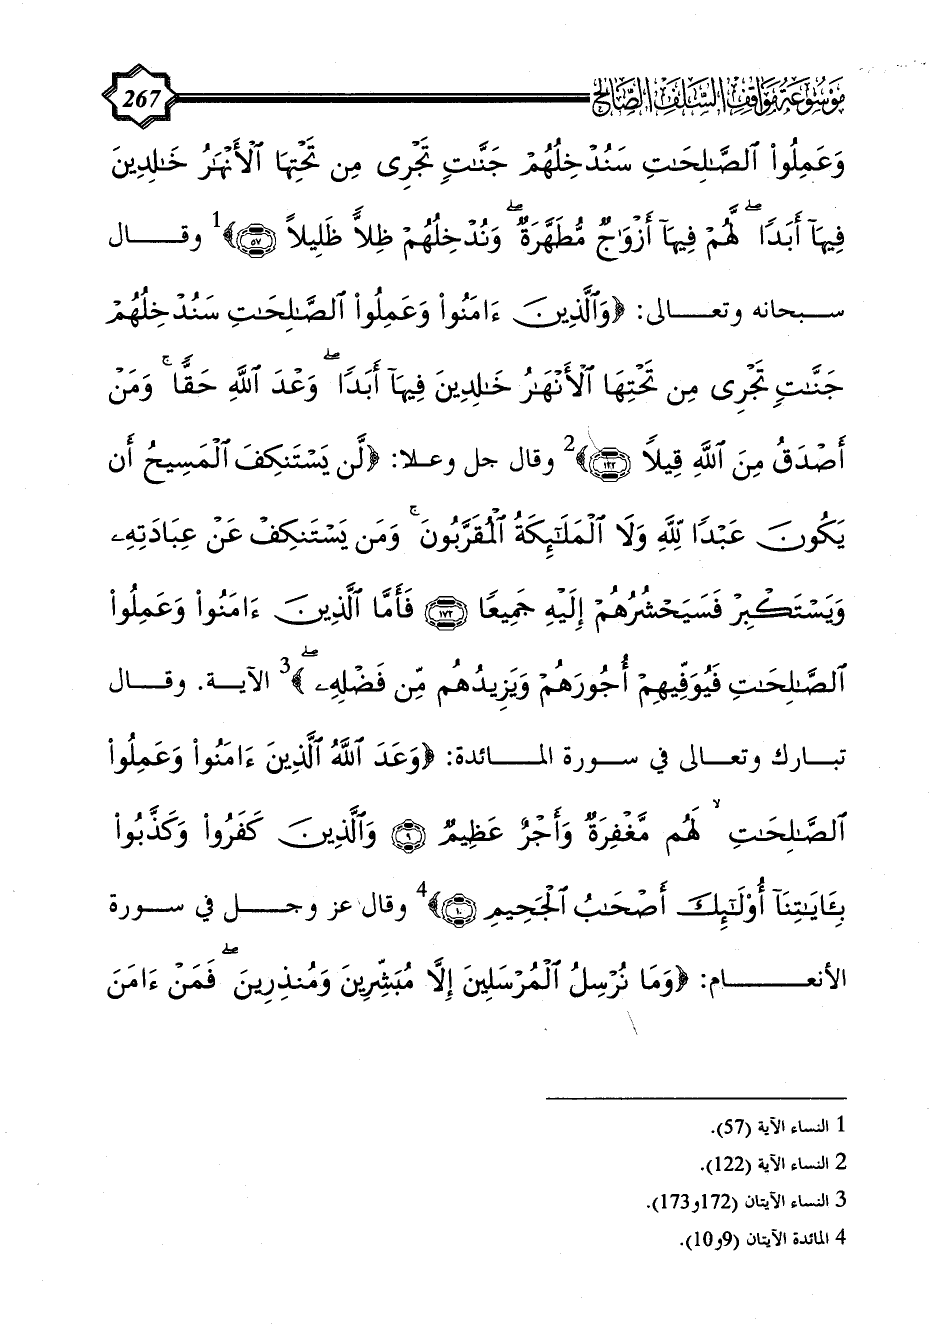 موسوعة مواقف السلف الصالح 267
وَعَمِلُوا۟ ٱلصَّٰلِحَٰتِ سَنُدْخِلُهُمْ جَنَّٰتٍ تَجْرِى مِن تَحْتِهَا ٱلْأَنْهَٰرُ خَٰلِدِينَ
فِيهَآ أَبَدًا ۖ لَّهُمْ فِيهَآ أَزْوَٰجٌ مُّطَهَّرَةٌ ۖ وَنُدْخِلُهُمْ ظِلًّا ظَلِيلًا ﴿٥٧﴾﴾1 وقـال
سـبحانه وتعـالى: ﴿وَٱلَّذِينَ ءَامَنُوا۟ وَعَمِلُوا۟ ٱلصَّٰلِحَٰتِ سَنُدْخِلُهُمْ
جَنَّٰتٍ تَجْرِى مِن تَحْتِهَا ٱلْأَنْهَٰرُ خَٰلِدِينَ فِيهَآ أَبَدًا ۖ وَعْدَ ٱللَّهِ حَقًّا ۚ وَمَنْ
أَصْدَقُ مِنَ ٱللَّهِ قِيلًا ﴿١٢٢﴾﴾2 وقال جل وعلا: ﴿لَّن يَسْتَنكِفَ ٱلْمَسِيحُ أَن
يَكُونَ عَبْدًا لِّلَّهِ وَلَا ٱلْمَلَٰٓئِكَةُ ٱلْمُقَرَّبُونَ ۚ وَمَن يَسْتَنكِفْ عَنْ عِبَادَتِهِۦ
وَيَسْتَكْبِرْ فَسَيَحْشُرُهُمْ إِلَيْهِ جَمِيعًا ﴿١٧٢﴾ فَأَمَّا ٱلَّذِينَ ءَامَنُوا۟ وَعَمِلُوا۟
ٱلصَّٰلِحَٰتِ فَيُوَفِّيهِمْ أُجُورَهُمْ وَيَزِيدُهُم مِّن فَضْلِهِۦ ۖ﴾3 الآيـة. وقـال
تبـارك وتعالى في سـورة المـائدة: ﴿وَعَدَ ٱللَّهُ ٱلَّذِينَ ءَامَنُوا۟ وَعَمِلُوا۟
ٱلصَّٰلِحَٰتِ ۙ لَهُم مَّغْفِرَةٌ وَأَجْرٌ عَظِيمٌ ﴿٩﴾ وَٱلَّذِينَ كَفَرُوا۟ وَكَذَّبُوا۟
بِـَٔايَٰتِنَآ أُو۟لَٰٓئِكَ أَصْحَٰبُ ٱلْجَحِيمِ ﴿١٠﴾﴾4 وقال عز وجـل في سـورة
الأنعـام: ﴿وَمَا نُرْسِلُ ٱلْمُرْسَلِينَ إِلَّا مُبَشِّرِينَ وَمُنذِرِينَ ۖ فَمَنْ ءَامَنَ
1 النساء الآية (57).
2 النساء الآية (122).
3 النساء الآيتان (172و173).
4 المائدة الآيتان (9و10).